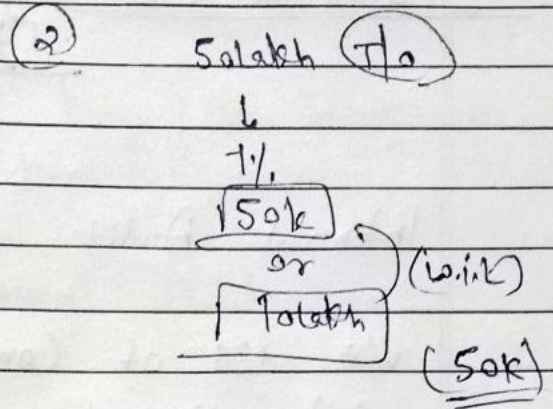 ② 50lakh T/o
↓
1%
50k
or
10lakh (w.i.L)
(50k)